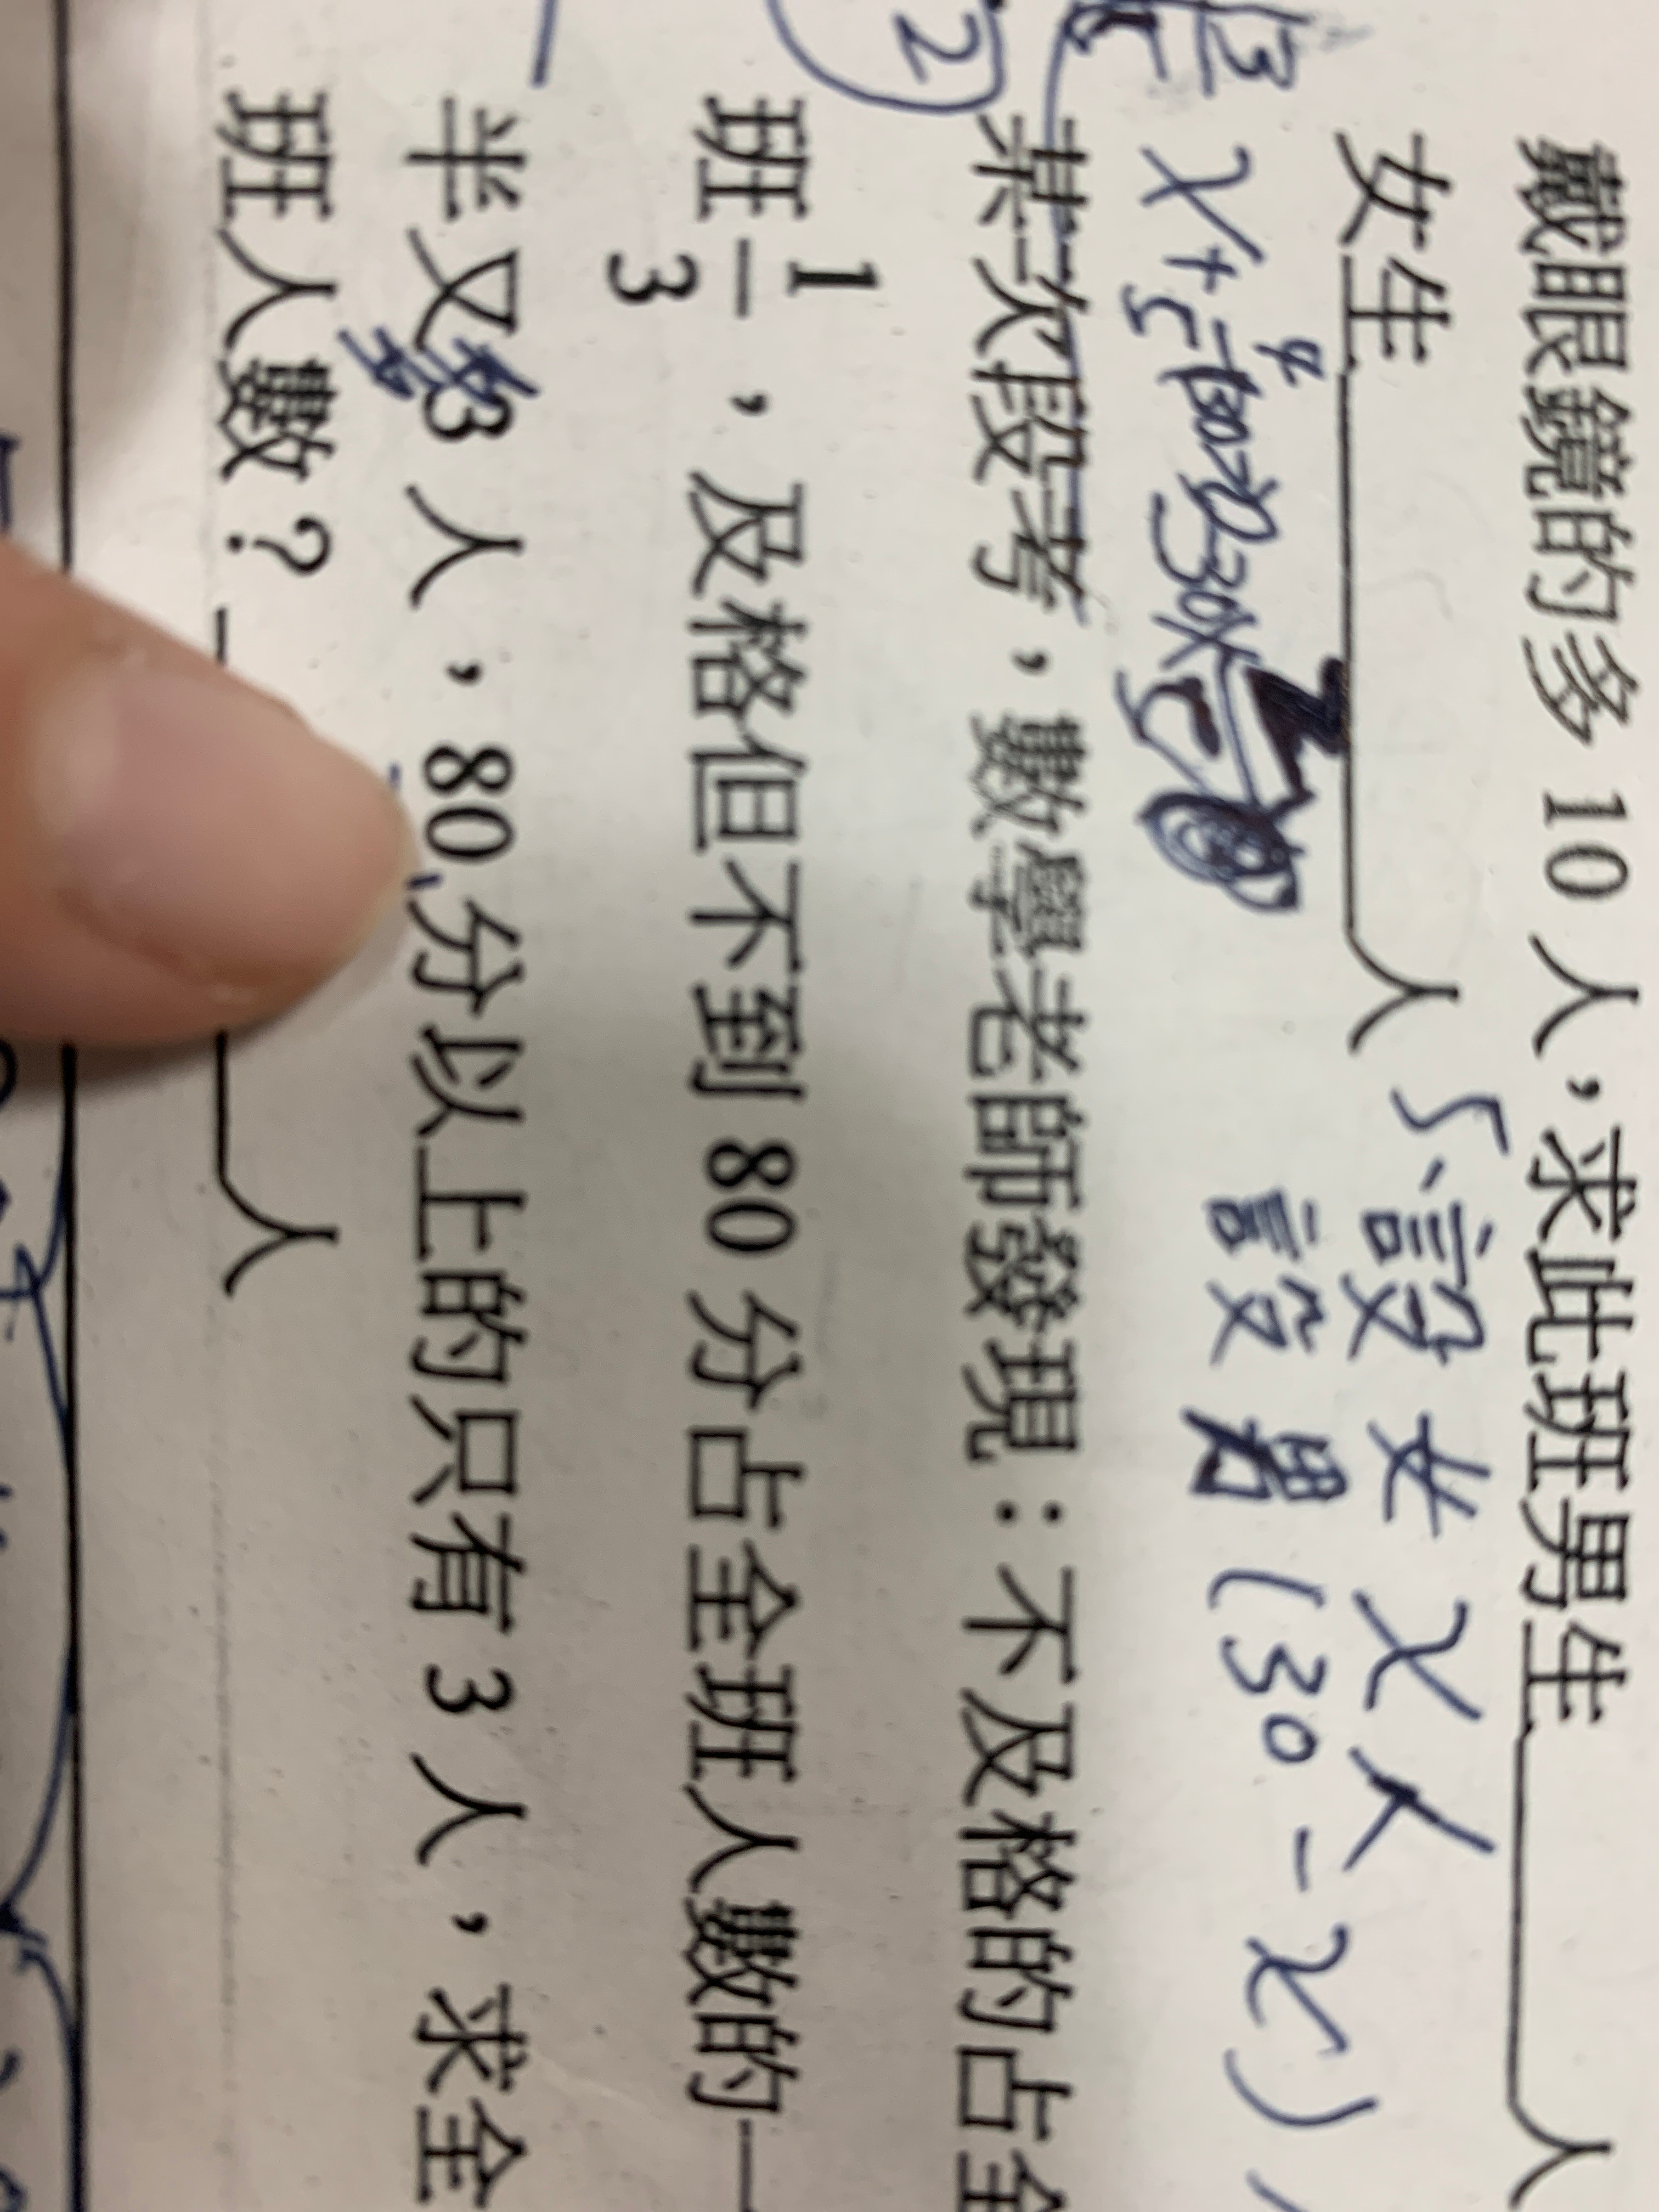 戴眼鏡的多 10 人，求此班男生＿＿＿人
女生＿＿＿人 5、設女 x 人
設男 (30-x)
某次段考，數學老師發現：不及格的占全
班 1/3，及格但不到 80 分占全班人數的一
半又 3 人，80 分以上的只有 3 人，求全
班人數？＿＿＿人